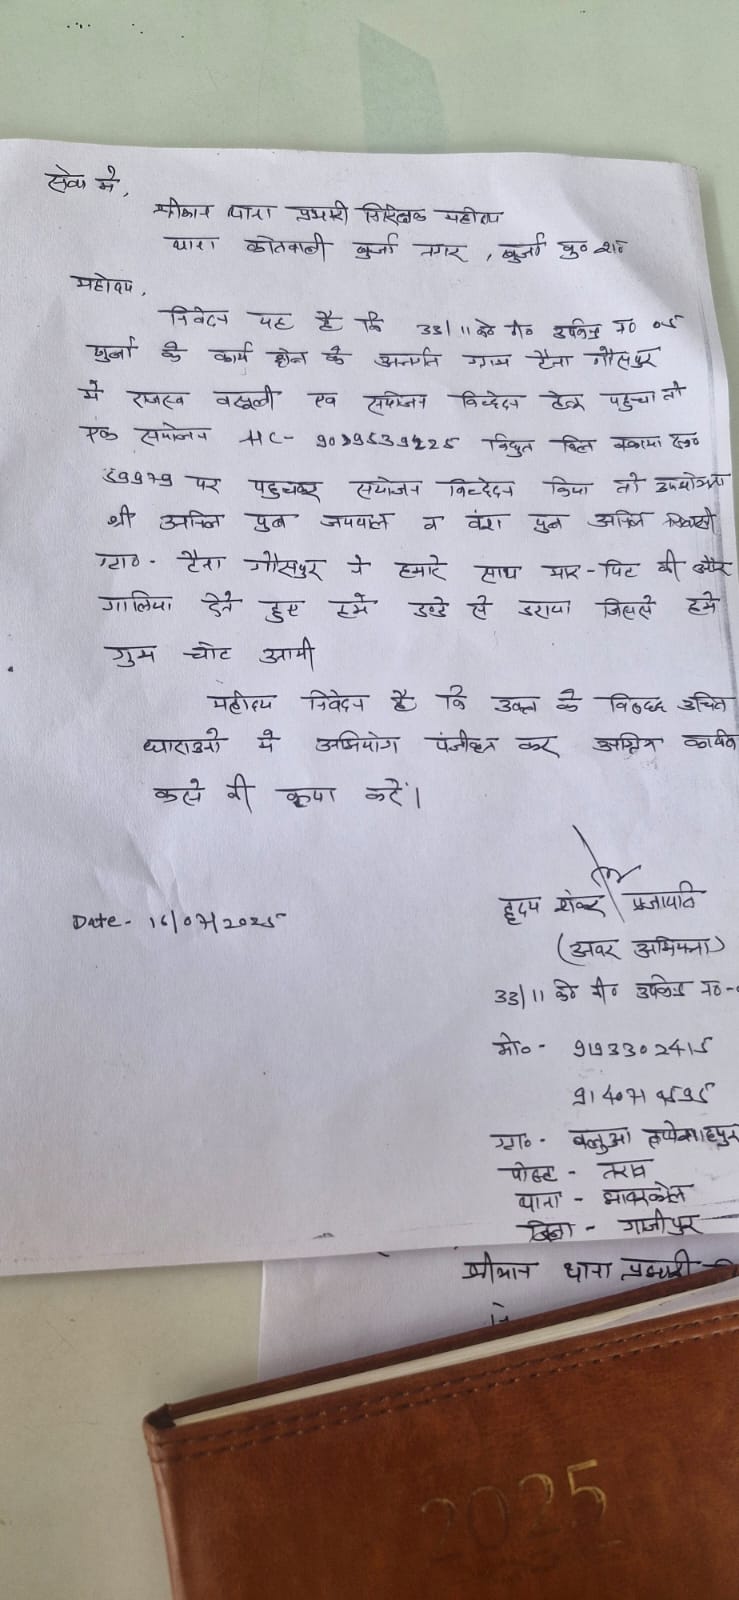 सेवा में,
श्रीमान थाना प्रभारी निरीक्षक महोदय
थाना कोतवाली खुर्जा नगर, खुर्जा बु० श०
महोदय,
निवेदन यह है कि 33/11 के० वी० उपकेन्द्र न० 05
खुर्जा के कार्य क्षेत्र के अन्तर्गत ग्राम टैना गौसपुर
में राजस्व वसूली एवं संयोजन विच्छेदन हेतु पहुचा तो
एक संयोजन AC- विधुत बिल बकाया रू०
59979 पर पहुचकर संयोजन विच्छेदन किया तो उपभोक्ता
श्री अनिल पुत्र जयपाल व वंश पुत्र अनिल निवासी
ग्रा०- टैना गौसपुर ने हमारे साथ मार-पिट की और
गालिया देते हुए हमे डण्डे से डराया जिससे हमे
गुम चोट आयी
महोदय निवेदन है कि उक्त के विरुद्ध उचित
धाराओ मे अभियोग पंजीकृत कर अग्रिम
करने की कृपा करें।
हृदय शंकर प्रजापति
Date- 16/07/2025
(अवर अभियन्ता)
33/11 के० वी० उपकेन्द्र न०-
मो०- 9193302415
ग्रा०- बलुआ
पोस्ट-
थाना- भांवरकोल
जिला- गाजीपुर
श्रीमान थाना प्रभारी
2025